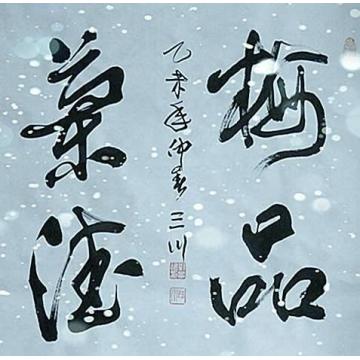 梅品
乙未年仲春三川
蘭德